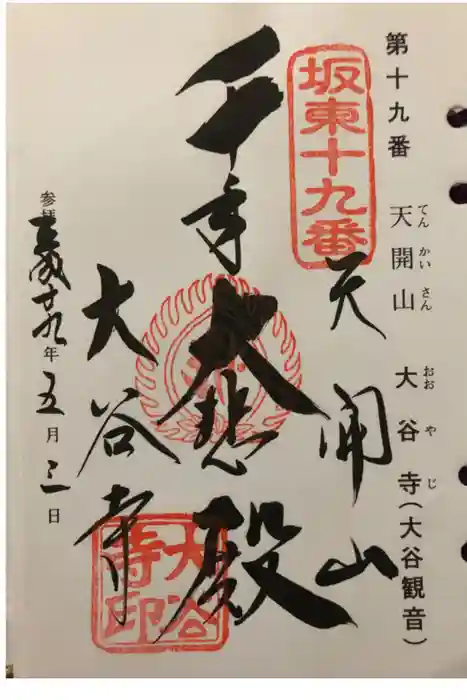 第十九番 天開山 大谷寺(大谷観音)
てんかいさん おおやじ
坂東十九番
天開山
千手大悲殿
大谷寺
大谷寺印
参拝 平成廿九年五月三日